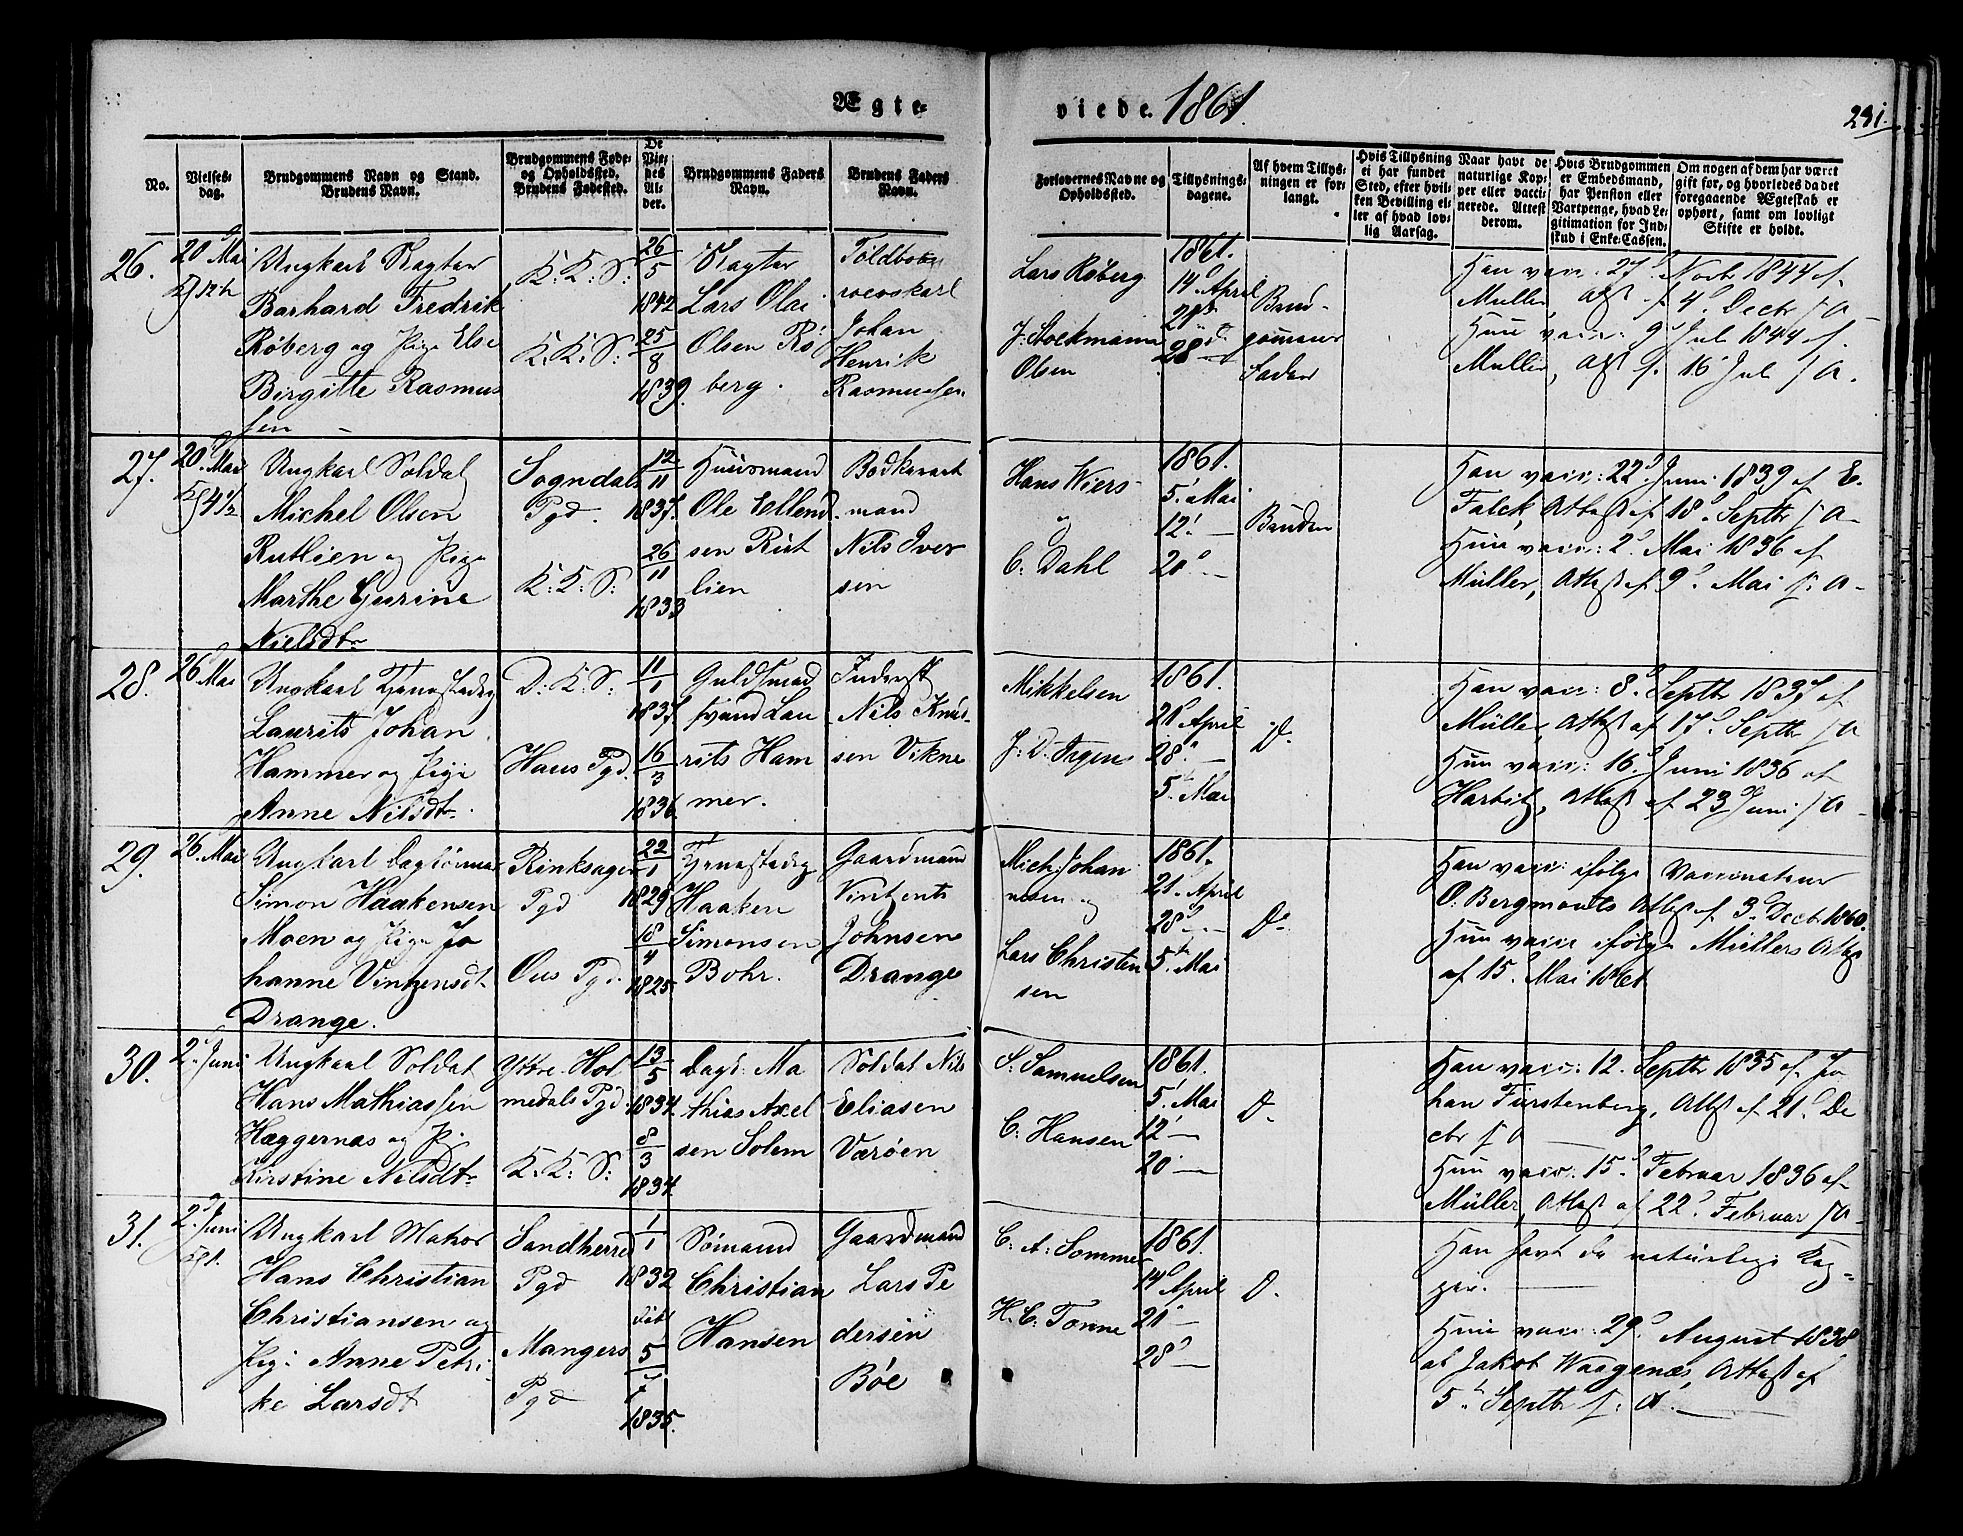 Ægte-
viede. 1861.
231.
No.
Vielses-
dag.
Brudgommens Navn og Stand.
Brudens Navn.
Brudgommens Føde-
og Opholdssted.
Brudens Fødested.
De
Vie-
des
Al-
der.
Brudgommens Faders
Navn.
Brudens Faders
Navn.
Forlovernes Navne og
Opholdssted.
Tillysnings-
dagene.
Af hvem Tillys-
ningen er for-
langt.
Hvis Tillysning
ei har fundet
Sted, efter hvil-
ken Bevilling el-
ler af hvad lov-
lig Aarsag.
Naar havt de
naturlige Kop-
per eller vacci-
nerede. Attest
derom.
Hvis Brudgommen
er Embedsmand,
har Pension eller
Vartpenge, hvad Le-
gitimation for Ind-
skud i Enke-Cassen.
Om nogen af dem har været
gift før, og hvorledes da det
foregaaende Ægteskab er
ophørt, samt om lovligt
Skifte er holdt.
26.
20 Mai
Ungkarl Slagter
Barhard Fredrik
Røberg og Pige Else
Birgitte Rasmus
sen
K: K: S:
K: K: S:
26/5
1842
25/8
1839.
Slagter
Lars Olai
Olsen Rø
berg.
Toldbetn
roerskarl
Johan
Henrik
Rasmussen
Lars Røberg
J: Stockmann
Olsen
1861.
14d April
21de
28d —
Brud-
gommens
Fader
Han vacc: 27d Novbr 1844 af
Muller, Att. af 4d Decbr s. A.
Hun vacc: 9d Jul 1844 af
Muller, Att. af 16 Jul s. A.
27.
20. Mai
Kl 4 1/2
Ungkarl Soldat
Michel Olsen
Rutlien og Pige
Marthe Gurine
Nielsdtr
Sogndal
Pgd.
K: K: S:
12/11
1837.
26/11
1833
Huusmand
Ole Ellend
sen Rut
lien
Bødkersvt
mand
Nils Iver
sen
Hans Wiers
og
C: Dahl
1861.
5' Mai
12' —
20d —
Bruden
Han vacc: 22d Juni 1839 af E.
Falck, Attest af 18d Septbr s A.
Hun vacc: 2d Mai 1836 af
Müller, Attest af 9d Mai s. A.
28.
26 Mai
Ungkarl Tjenestedrg
Laurits Johan
Hammer og Pige
Anne Nilsdtr.
D: K: S:
Haus Pgd.
11/1
1837.
16/3
1836.
Guldsmed
svend Lau
rits Ham
mer.
Inderst
Nils Knud
sen Vikne
Mikkelsen
J: D: Irgens
1861.
21d April
28d —
5. Mai
D.
Han vacc: 8d Septbr 1837 af
Müller, Attest af 17d Septbr s A
Hun vacc: 16d Juni 1836 af
Harbitz, Attest af 23d Juni s A.
29.
26. Mai
Ungkarl Daglønner
Simon Haakensen
Moen og Pige Jo
hanne Vinzensdtr
Drange.
Rinksager
Pgd
Ous Pgd.
22/1
1829
18/4
1825
Tjenestedrg
Haaken
Simonsen
Bohr.
Gaardmand
Vintzents
Johnsen
Drange
Mich: Johan
nesen og
Lars Christen
sen
1861.
21. April
28d —
5te Mai
Do
Han vacc: ifølge Vaccinateur
O. Bergmonts Attest af 3d Decbr 1860.
Hun vacc ifølge Müllers Attest
af 15. Mai 1861
30.
2d Juni
Ungkarl Soldat
Hans Mathiassen
Hæggernæs og Pige
Kirstine Nilsdtr
Yttre Hol
medals Pgd.
K: K: S:
13/5
1834.
8/3
1834.
Dagl: Ma
thias Axel
sen Solem
Soldat Nils
Eliasen
Værøen
S: Samuelsen
C: Hansen
1861.
5' Mai
12' —
20 —
D.
Han vacc: 12. Septbr 1835 af Jo
han Fürstenberg, Attest af 21d De
cbr s A
Hun vacc: 15d Februar 1836 af
Müller, Attest af 22d Februar s A.
31.
2d Juni
Ungkarl Matros
Hans Christian
Christiansen og
Pige Anne Petri
ke Larsdt
Sandherred
Pgd
Mangers
Pgd
1/1
1832
døbt
5/7
1835.
Sømand
Christian
Hansen
Gaardmand
Lars Pe
dersen
Bøe
C: A: Sommer
H. C: Tonne
1861.
14d April
21' —
28d —
D.
Han havt de naturlige Kop-
per.
Hun vacc: 29d August 1838
af Jakob Waagenæs, Attest af
5te Septbr s. A. —